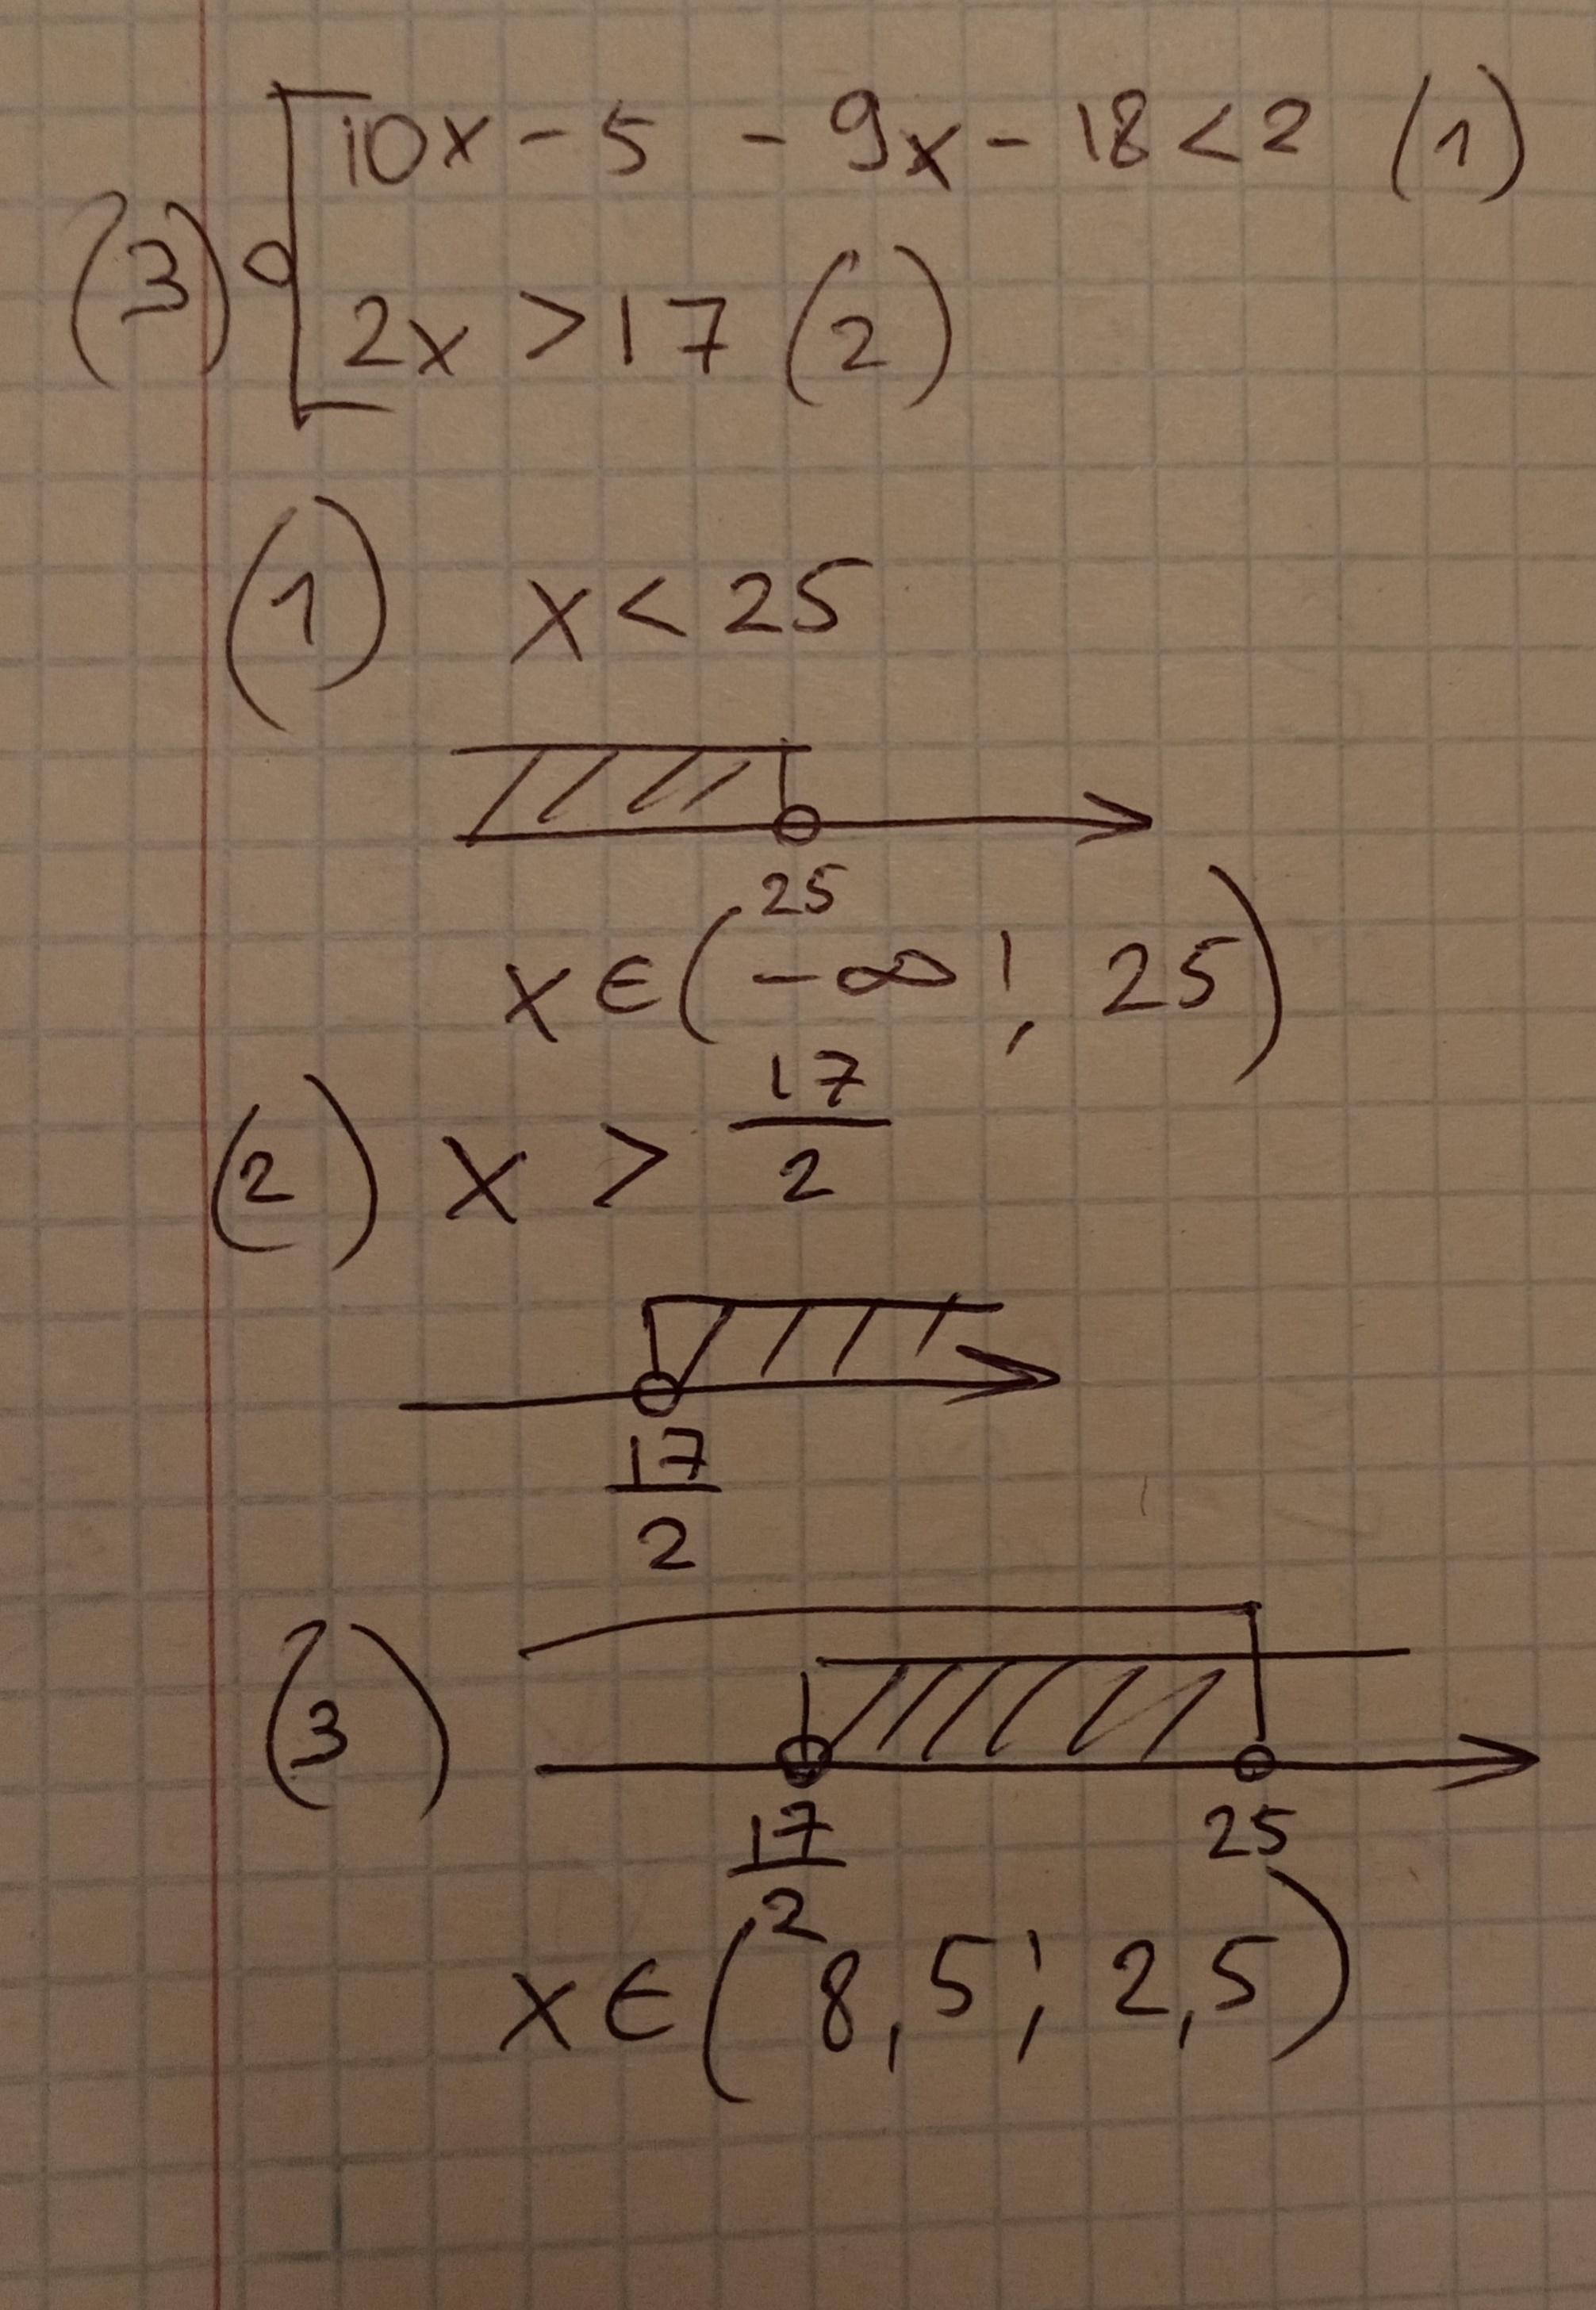 10x - 5 - 9x - 18 < 2 (1)
(3)
2x > 17 (2)
(1) x < 25
25
x ∈ (-∞; 25)
(2) x > 17/2
17/2
(3)
17/2 25
x ∈ (8,5; 2,5)